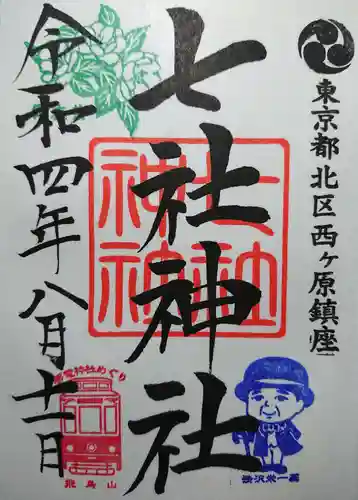 東京都北区西ヶ原鎮座
七社神社
七社神社
令和四年八月十一日
都電神社めぐり
飛鳥山
渋沢栄一翁